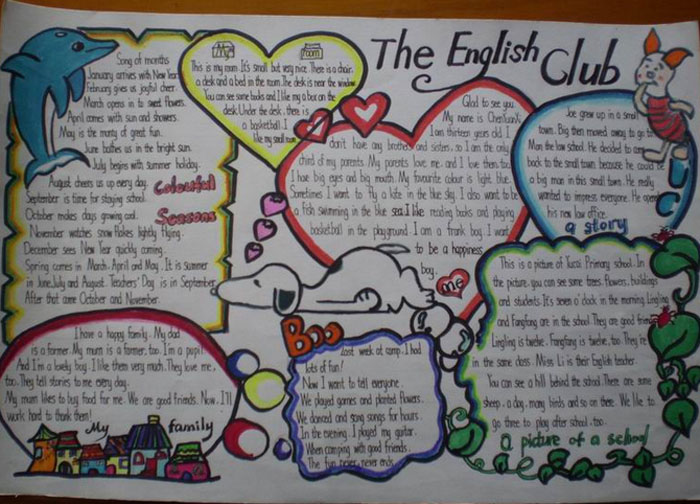 The English Club
Song of months
January arrives with New Year.
February gives us joyful cheer.
March opens in to sweet flowers.
April comes with sun and showers.
May is the monty of great fun.
June bathes us in the bright sun.
July begins with summer holiday.
August cheers us up every day.
September is time for staying school.
October makes days growing cool.
November watchs snow flakes lightly flying.
December sees New Year quickly coming.
Spring comes in March, April and May. It is summer
in June, July and August. Teachers' Day is in September
After that come October and November.
Colourful
Seasons
My room
This is my room. It's small but very nice. There is a chair,
a desk and a bed in the room. The desk is near the window.
You can see some books and I like my a box on the
desk. Under the desk, there is
a basketball. I
like my small room.
Glad to see you.
My name is
I am thirteen years old. I
don't have any brothers and sisters, so I am the only
child of my parents. My parents love me, and I love them, too.
I have big eyes and big mouth. My favourite colour is light blue.
Sometimes I want to fly a kite in the blue sky. I also want to be
a fish swimming in the blue sea. I like reading books and playing
basketball in the playground. I am a frank boy. I want
to be a happiness
boy.
me
Joe grew up in a small
town. Big then moved away to go to
Man the law school. He decided to come
back to the small town because he could be
a big man in this small town. He really
wanted to impress everyone. He opened
his new law office.
a story
I have a happy family. My dad
is a farmer. My mum is a farmer, too. I'm a pupil.
And I'm a lovely boy. I like them very much. They love me,
too. They tell stories to me every day.
My mum likes to buy food for me. We are good friends. Now, I'll
work hard to thank them!
My family
Boo
Last week at camp. I had
lots of fun!
Now I want to tell everyone.
We played games and planted flowers.
We danced and song songs for hours.
In the evening. I played my guitar.
When camping with good friends.
The fun never, never ends.
This is a picture of Yucai Primary school. In
the picture, you can see some trees, flowers, buildings
and students. It's seven o' clock in the morning. Lingling
and Fangfang are in the school. They are good friends.
Lingling is twelve. Fangfang is twelve, too. They're
in the same class. Miss Li is their English teacher.
You can see a hill behind the school. There are some
sheep, a dog, many birds and so on there. We like to
go there to play after school, too.
a picture of a school